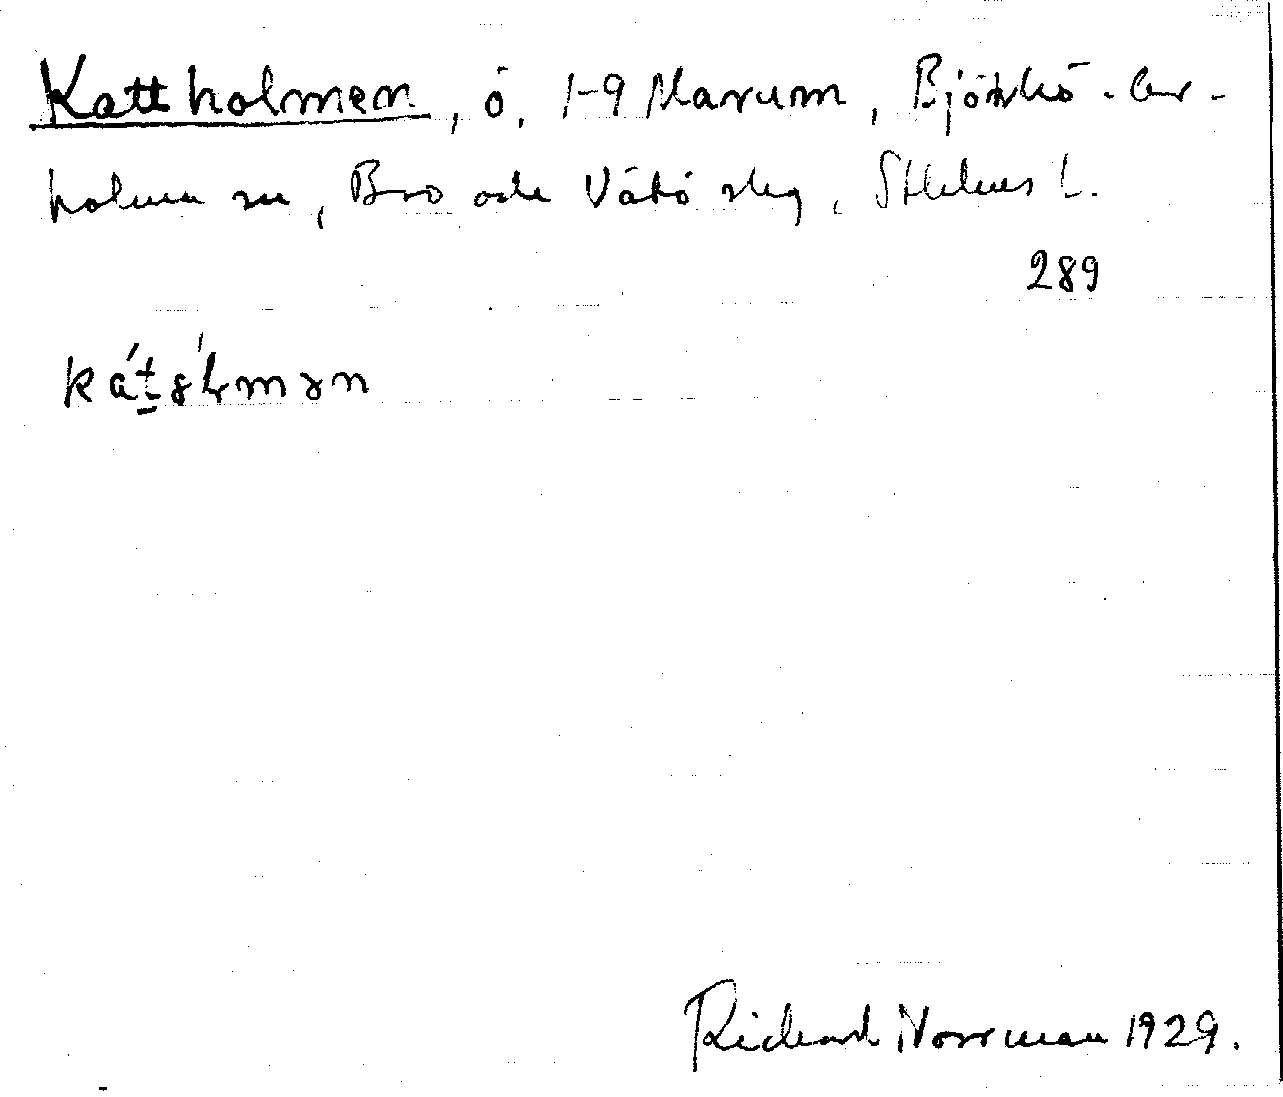 Kattholmen, ö, 1-9 Marum, Björkö-Ar-
holma sn, Bro och Vätö skg, Sthlms l.
289
Richard Norrman 1929.